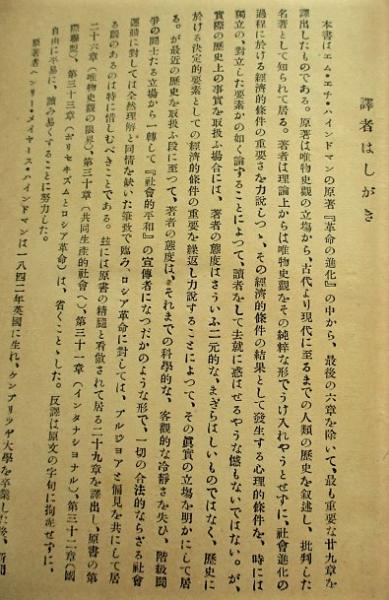 譯者はしがき
本書はエム・エチ・ハインドマンの原著『革命の進化』の中から、最後の六章を除いて、最も重要な廿九章を
譯出したものである。原著は唯物史觀の立場から、古代より現代に至るまでの人類の歴史を叙述し、批判した
名著として知られて居る。著者は理論上からは唯物史觀をその純粹な形でうけ入れやうとせずに、社會進化の
過程に於ける經濟的條件の重要さを力説しつゝ、その經濟的條件の結果として發生する心理的條件を、時には
獨立の、對立した要素かの如く論ずることによつて、讀者をして去就に惑はせるやうな憾もないではない。が、
實際の歴史上の事實を取扱ふ場合には、著者の態度はさういふ二元的な、まぎらはしいものではなく、歴史に
於ける決定的要素としての經濟的條件の重要を繰返し力説することによつて、その眞實の立場を明かにして居
る。が最近の歴史を取扱ふ段に至つて、著者の態度は、それまでの科學的な、客觀的な冷靜さを失ひ、階級鬪
爭の鬪士たる立場から一轉して『社會的平和』の宣傳者になつたかのような形で、一切の合法的ならざる社會
運動に對しては全然理解と同情を缺いた筆致で臨み、ロシア革命に對しては、ブルジヨアと偏見を共にして居
る觀のあるのは特に惜しむべきことである。玆には原書の精髓と看做されて居る二十九章を譯出し、原書の第
二十六章(唯物史觀の限界)、第三十章(共同生産的社會へ)、第三十一章(インタナシヨナル)、第三十二章(國
際聯盟)、第三十三章(ボリセキズムとロシア革命)は、省くことゝした。反譯は原文の字句に拘泥せずに、
自由に平易に、讀み易くすることに努力した。
原著者ヘンリー・メイヤース・ハインドマンは一八四二年英國に生れ、ケンブリツヂ大學を卒業した後、新聞